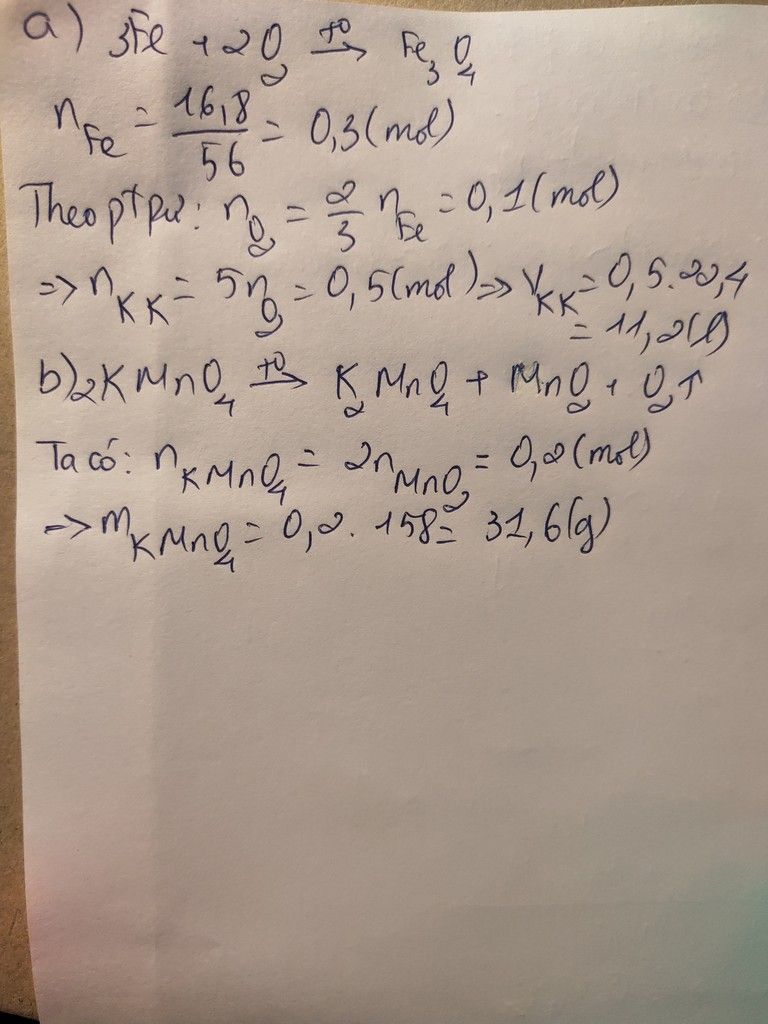 a) 3Fe + 2O₂ →(t⁰) Fe₃O₄
n_Fe = 16,8/56 = 0,3 (mol)
Theo ptpư: n_O₂ = 2/3 n_Fe = 0,1 (mol)
=> n_KK = 5n_O₂ = 0,5 (mol) => V_KK = 0,5.22,4
= 11,2 (l)
b) 2KMnO₄ →(t⁰) K₂MnO₄ + MnO₂ + O₂↑
Ta có: n_KMnO₄ = 2n_MnO₂ = 0,2 (mol)
=> m_KMnO₄ = 0,2. 158 = 31,6 (g)